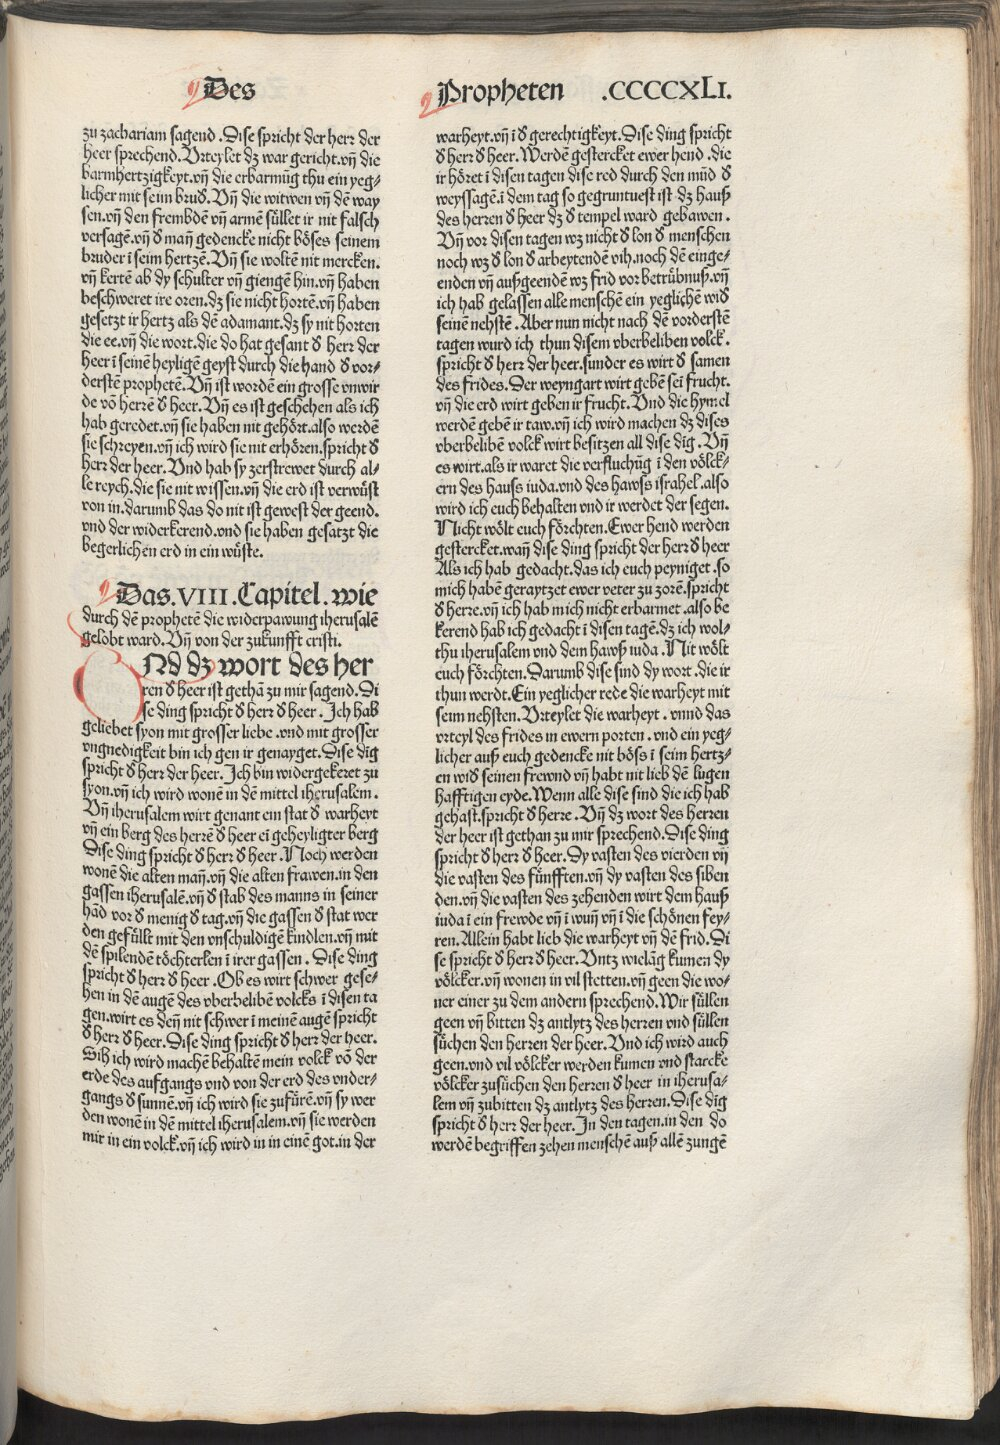 Des
Propheten .CCCCXLI.
zu zachariam sagend. Dise spricht der herr der
heer sprechend. Vrteylet dz war gericht. vñ die
barmhertzigkeyt. vñ die erbarmũg thu ein yeg-
licher mit seim brud̕. Vñ die witwen vñ dẽ way
sen. vñ den frembdẽ vñ armẽ süllet ir nit falsch
versagẽ. vñ d̕ mañ gedencke nicht böses seinem
bruder ĩ seim hertzẽ. Vñ sie woltẽ nit mercken.
vñ kertẽ ab dy schulter vñ giengẽ hin. vñ haben
beschweret ire oren. dz sie nicht hortẽ. vñ haben
gesetzt ir hertz als dẽ adamant. dz sy nit horten
die ee. vñ die wort. die do hat gesant d̕ herr der
heer ĩ seinẽ heyligẽ geyst durch die hand d̕ vor-
derstẽ prophetẽ. Vñ ist wordẽ ein grosse vnwir
de võ herrẽ d̕ heer. Vñ es ist geschehen als ich
hab geredet. vñ sie haben nit gehört. also werdẽ
sie schreyen. vñ ich wird sie nit erhören. spricht d̕
herr der heer. Vnd hab sy zerstrewet durch al-
le reych. die sie nit wissen. vñ die erd ist verwüst
von in. darumb das do nit ist gewest der geend.
vnd der widerkerend. vnd sie haben gesatzt die
begerlichen erd in ein wüste.
Das. VIII. Capitel. wie
durch dẽ prophetẽ die widerpawung iherusalẽ
gelobt ward. Vñ von der zukunfft cristi.
ND dz wort des her
ren d̕ heer ist gethã zu mir sagend. Di
se ding spricht d̕ herr d̕ heer. Ich hab
geliebet syon mit grosser liebe. vnd mit grosser
vngnedigkeit bin ich gen ir genayget. Dise dĩg
spricht d̕ herr der heer. Ich bin widergekeret zu
syon. vñ ich wird wonẽ in dẽ mittel iherusalem.
Vñ iherusalem wirt genant ein stat d̕ warheyt
vñ ein berg des herrẽ d̕ heer eĩ geheyligter berg
Dise ding spricht d̕ herr d̕ heer. Noch werden
wonẽ die alten mañ. vñ die alten frawen. in den
gassen iherusalẽ. vñ d̕ stab des manns in seiner
hãd vor d̕ menig d̕ tag. vñ die gassen d̕ stat wer
den gefüllt mit den vnschuldigẽ kindlen. vñ mit
dẽ spilendẽ töchterlen ĩ irer gassen. Dise ding
spricht d̕ herr d̕ heer. Ob es wirt schwer gese-
hen in dẽ augẽ des vberbelibẽ volcks ĩ disen ta
gen. wirt es deñ nit schwer ĩ meinẽ augẽ spricht
d̕ herr d̕ heer. Dise ding spricht d̕ herr der heer.
Sih ich wird machẽ behaltẽ mein volck võ der
erde des aufgangs vnd von der erd des vnder-
gangs d̕ sunnẽ. vñ ich wird sie zufürẽ. vñ sy wer
den wonẽ in dẽ mittel iherusalem. vñ sie werden
mir in ein volck. vñ ich wird in in einẽ got. in der
warheyt. vñ ĩ d̕ gerechtigkeyt. Dise ding spricht
d̕ herr d̕ heer. Werdẽ gestercket ewer hend. die
ir höret ĩ disen tagen dise red durch den mũd d̕
weyssagẽ. ĩ dem tag so gegruntuest ist dz hauß
des herren d̕ heer dz d̕ tempel ward gebawen.
Vñ vor disen tagen wz nicht d̕ lon d̕ menschen
noch wz d̕ lon d̕ arbeytendẽ vih. noch dẽ einge-
enden vñ außgeendẽ wz frid vor betrübnuß. vñ
ich hab gelassen alle menschẽ ein yeglichẽ wid̕
seinẽ nehstẽ. Aber nun nicht nach dẽ vorderstẽ
tagen wurd ich thun disem vberbeliben volck.
spricht d̕ herr der heer. sunder es wirt d̕ samen
des frides. Der weyngart wirt gebẽ seĩ frucht.
vñ die erd wirt geben ir frucht. Vnd die hym̃el
werdẽ gebẽ ir taw. vñ ich wird machen dz dises
vberbelibẽ volck wirt besitzen all dise dĩg. Vñ
es wirt. als ir waret die verfluchũg ĩ den völck-
ern des hauss iuda. vnd des hawss israhel. also
wird ich euch behalten vnd ir werdet der segen.
Nicht wölt euch förchten. Ewer hend werden
gestercket. wañ dise ding spricht der herr d̕ heer
Als ich hab gedacht. das ich euch peyniget. so
mich habẽ geraytzet ewer veter zu zorẽ. spricht
d̕ herre. vñ ich hab mich nicht erbarmet. also be
kerend hab ich gedacht ĩ disen tagẽ. dz ich wol-
thu iherusalem vnd dem hawß iuda. Nit wölt
euch förchten. Darumb dise sind dy wort. die ir
thun werdt. Ein yeglicher rede die warheyt mit
seim nehsten. Vrteylet die warheyt. vnnd das
vrteyl des frides in ewern porten. vnd ein yeg-
licher auß euch gedencke nit böss ĩ seim hertz-
en wid̕ seinen frewnd vñ habt nit lieb dẽ lugen
hafftigen eyde. Wenn alle dise sind die ich hab
gehast. spricht d̕ herre. Vñ dz wort des herren
der heer ist gethan zu mir sprechend. Dise ding
spricht d̕ herr d̕ heer. Dy vasten des vierden vñ
die vasten des fünfften. vñ dy vasten des siben
den. vñ die vasten des zehenden wirt dem hauß
iuda ĩ ein frewde vñ ĩ wuñ vñ ĩ die schönen fey-
ren. Allein habt lieb die warheyt vñ dẽ frid. Di
se spricht d̕ herr d̕ heer. Vntz wielãg kumen dy
völcker. vñ wonen in vil stetten. vñ geen die wo-
ner einer zu dem andern sprechend. Wir süllen
geen vñ bitten dz antlytz des herren vnd süllen
süchen den herren der heer. Vnd ich wird auch
geen. vnd vil völcker werden kumen vnd starcke
völcker zusüchen den herren d̕ heer in iherusa-
lem vñ zubitten dz antlytz des herren. Dise dĩg
spricht d̕ herr der heer. In den tagen. in den do
werdẽ begriffen zehen menschẽ auß allẽ zungẽ